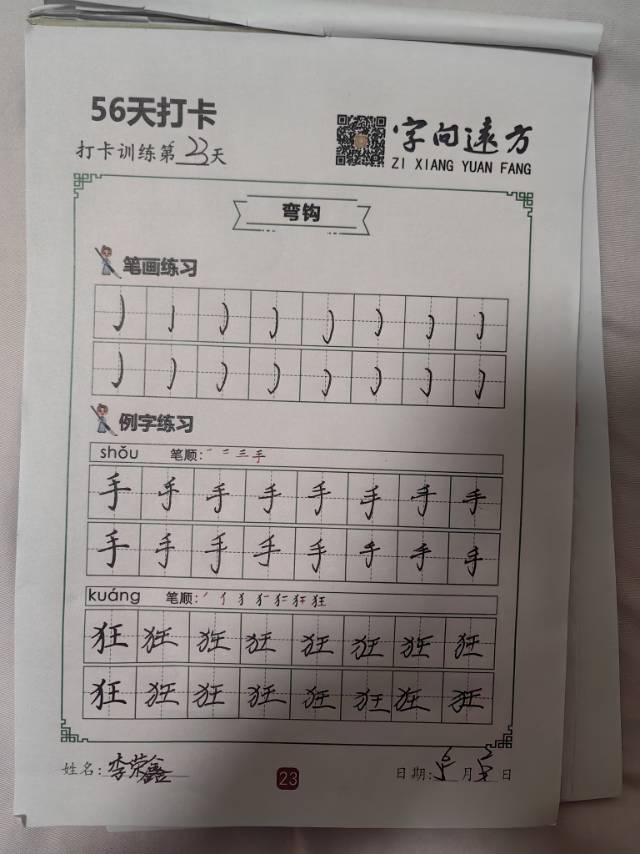 56天打卡
字向遠方
打卡训练第23天
ZI XIANG YUAN FANG
弯钩
笔画练习
例字练习
shǒu 笔顺: 一 二 三 手
手 手 手 手 手 手 手 手
手 手 手 手 手 手 手 手
kuáng 笔顺: 狂
狂 狂 狂 狂 狂 狂 狂 狂
狂 狂 狂 狂 狂 狂 狂 狂
姓名: 李荣鑫
23
日期: 月 日